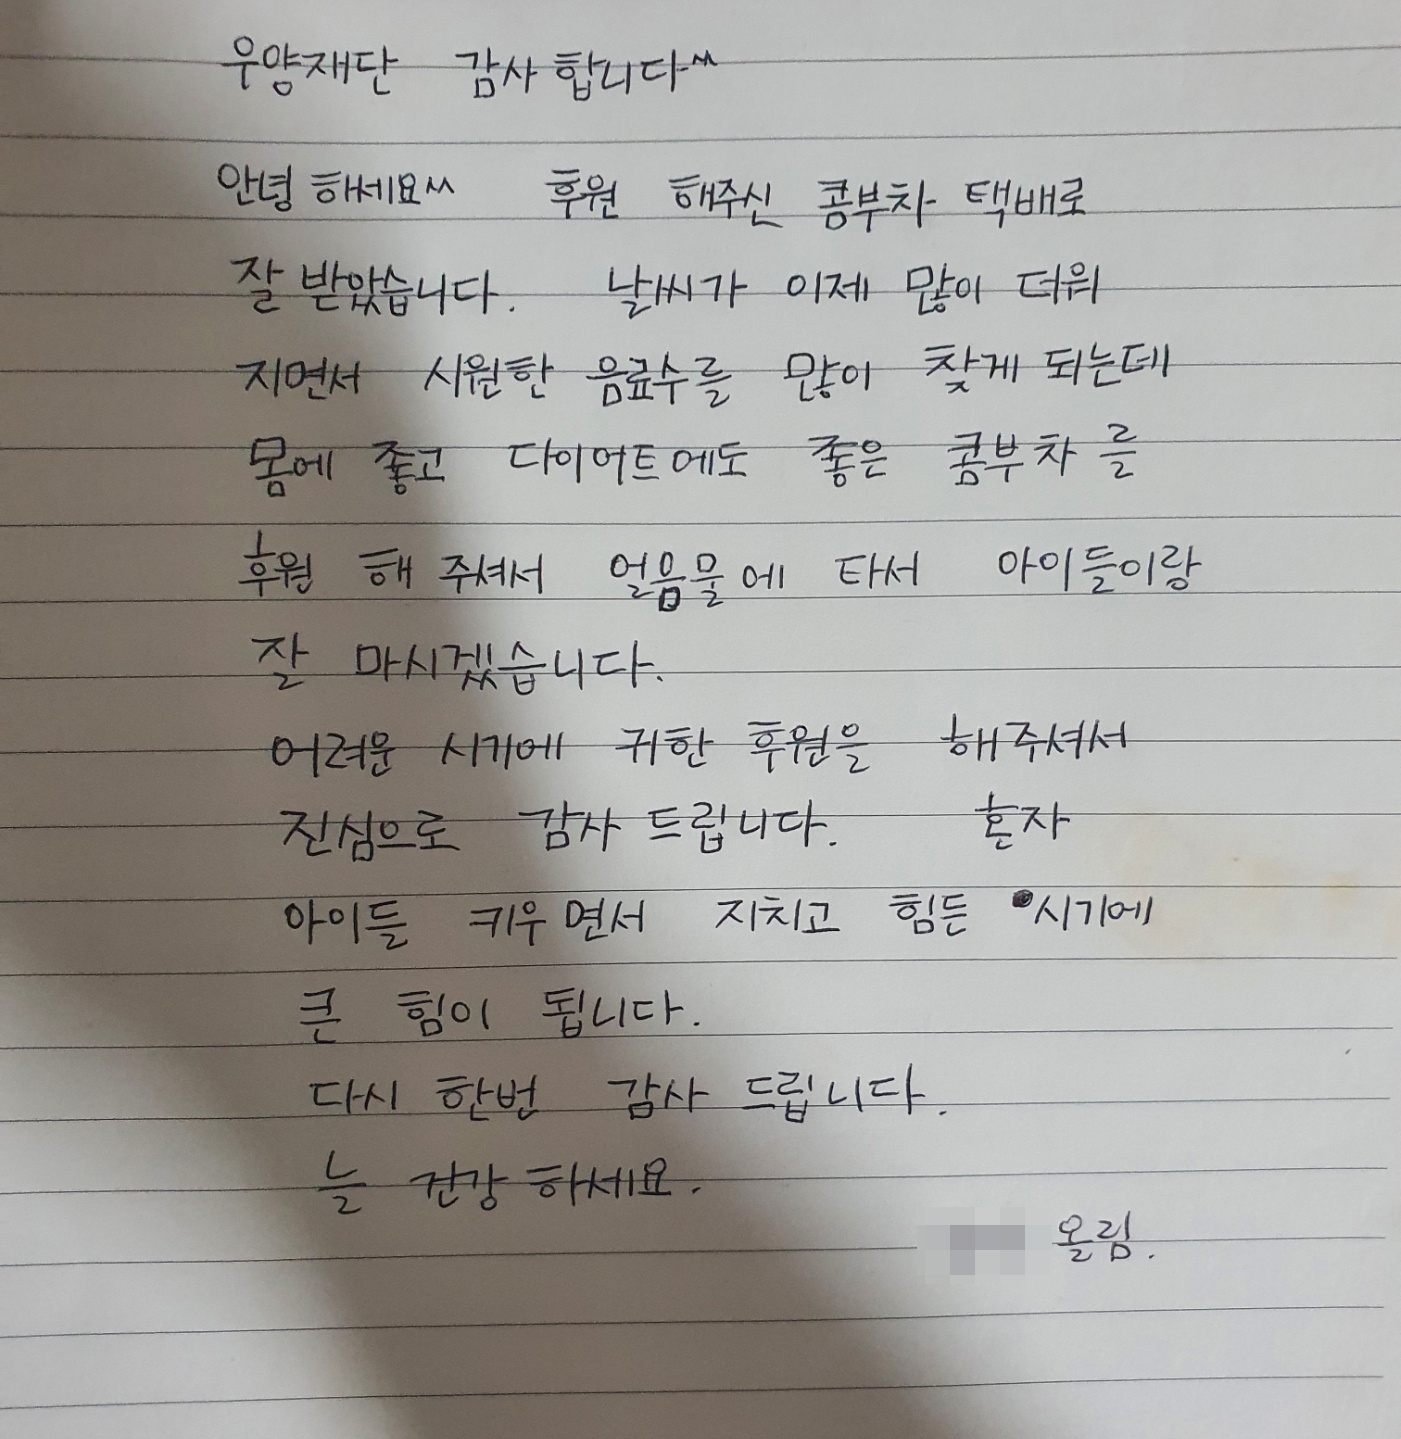 우양재단 감사합니다^^
안녕하세요^^ 후원 해주신 콤부차 택배로
잘 받았습니다. 날씨가 이제 많이 더워
지면서 시원한 음료수를 많이 찾게 되는데
몸에 좋고 다이어트에도 좋은 콤부차를
후원 해 주셔서 얼음물에 타서 아이들이랑
잘 마시겠습니다.
어려운 시기에 귀한 후원을 해주셔서
진심으로 감사 드립니다. 혼자
아이들 키우면서 지치고 힘든 시기에
큰 힘이 됩니다.
다시 한번 감사 드립니다.
늘 건강 하세요.
올림.